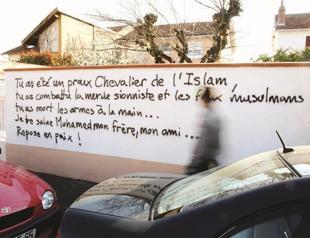 Tu as été un preux Chevalier de l'Islam,
tu as combattu la merde sioniste et les faux musulmans
tu as mort les armes à la main...
Je te salue Mohamed mon frère, mon ami...
Repose en paix !